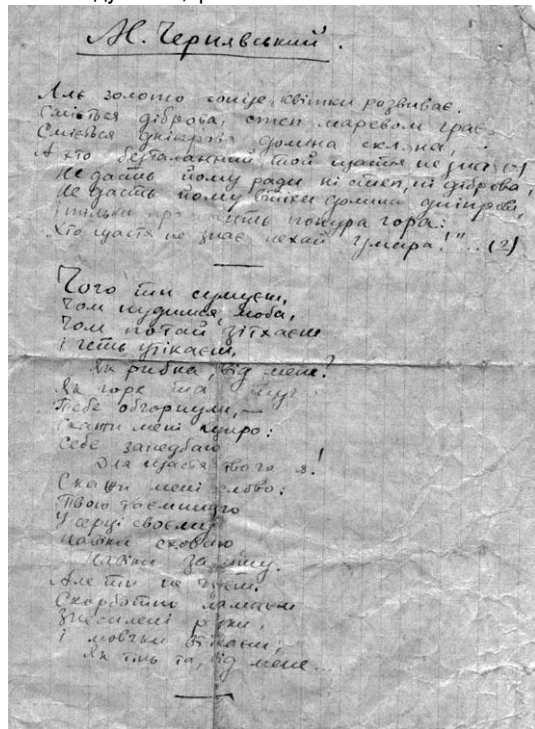 М. Чернявський.
Ллє золото сонце, квітки розвиває.
Сміється діброва, степ маревом грає
Сміється дніпрова долина склзна,
А хто безталанний той щастя не зна (2)
Не дасть йому ради ні степ, ні діброва,
Не дасть йому втіхи долина дніпрова,
І тільки понура гора:
Хто щастя не знає нехай умира!".. (2)
Чого ти сумуєш,
Чом нудишся, люба,
Чом потай зітхаєш
і геть утікаєш,
Як рибка, від мене?
Як горе
Тебе обгорнули, —
Скажи мені щиро:
Себе занедбаю
Для щастя твого я!
Скажи мені слово:
Твою таємницю
У серці своєму
Навіки сховаю
Навіки
Але ти не чуєш.
Скорботно ламаєш
Знесилені руки,
і мовчки втікаєш,
Як тінь та, від мене...